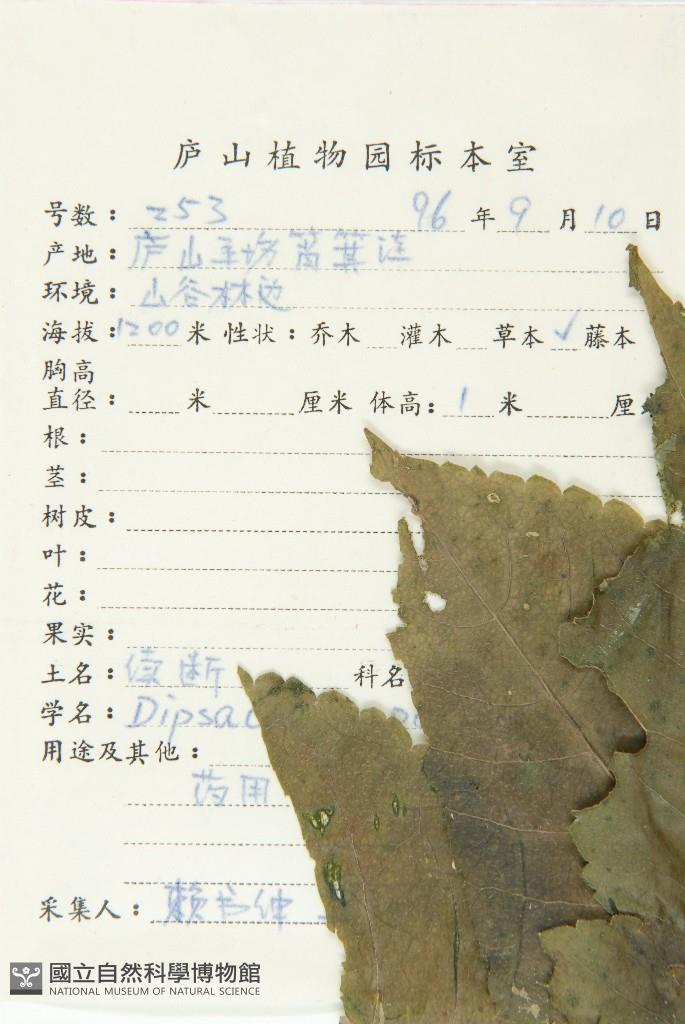 庐山植物园标本室
号数：253 96年9月10日
产地：庐山羊场筲箕洼
环境：山谷林边
海拔：1200米 性状：乔木 灌木 草本 ✓ 藤本
胸高
直径： 米 厘米 体高：1 米 厘
根：
茎：
树皮：
叶：
花：
果实：
土名：续断 科名
学名：Dipsac
用途及其他：
药用
采集人：赖书绅
國立自然科學博物館
NATIONAL MUSEUM OF NATURAL SCIENCE